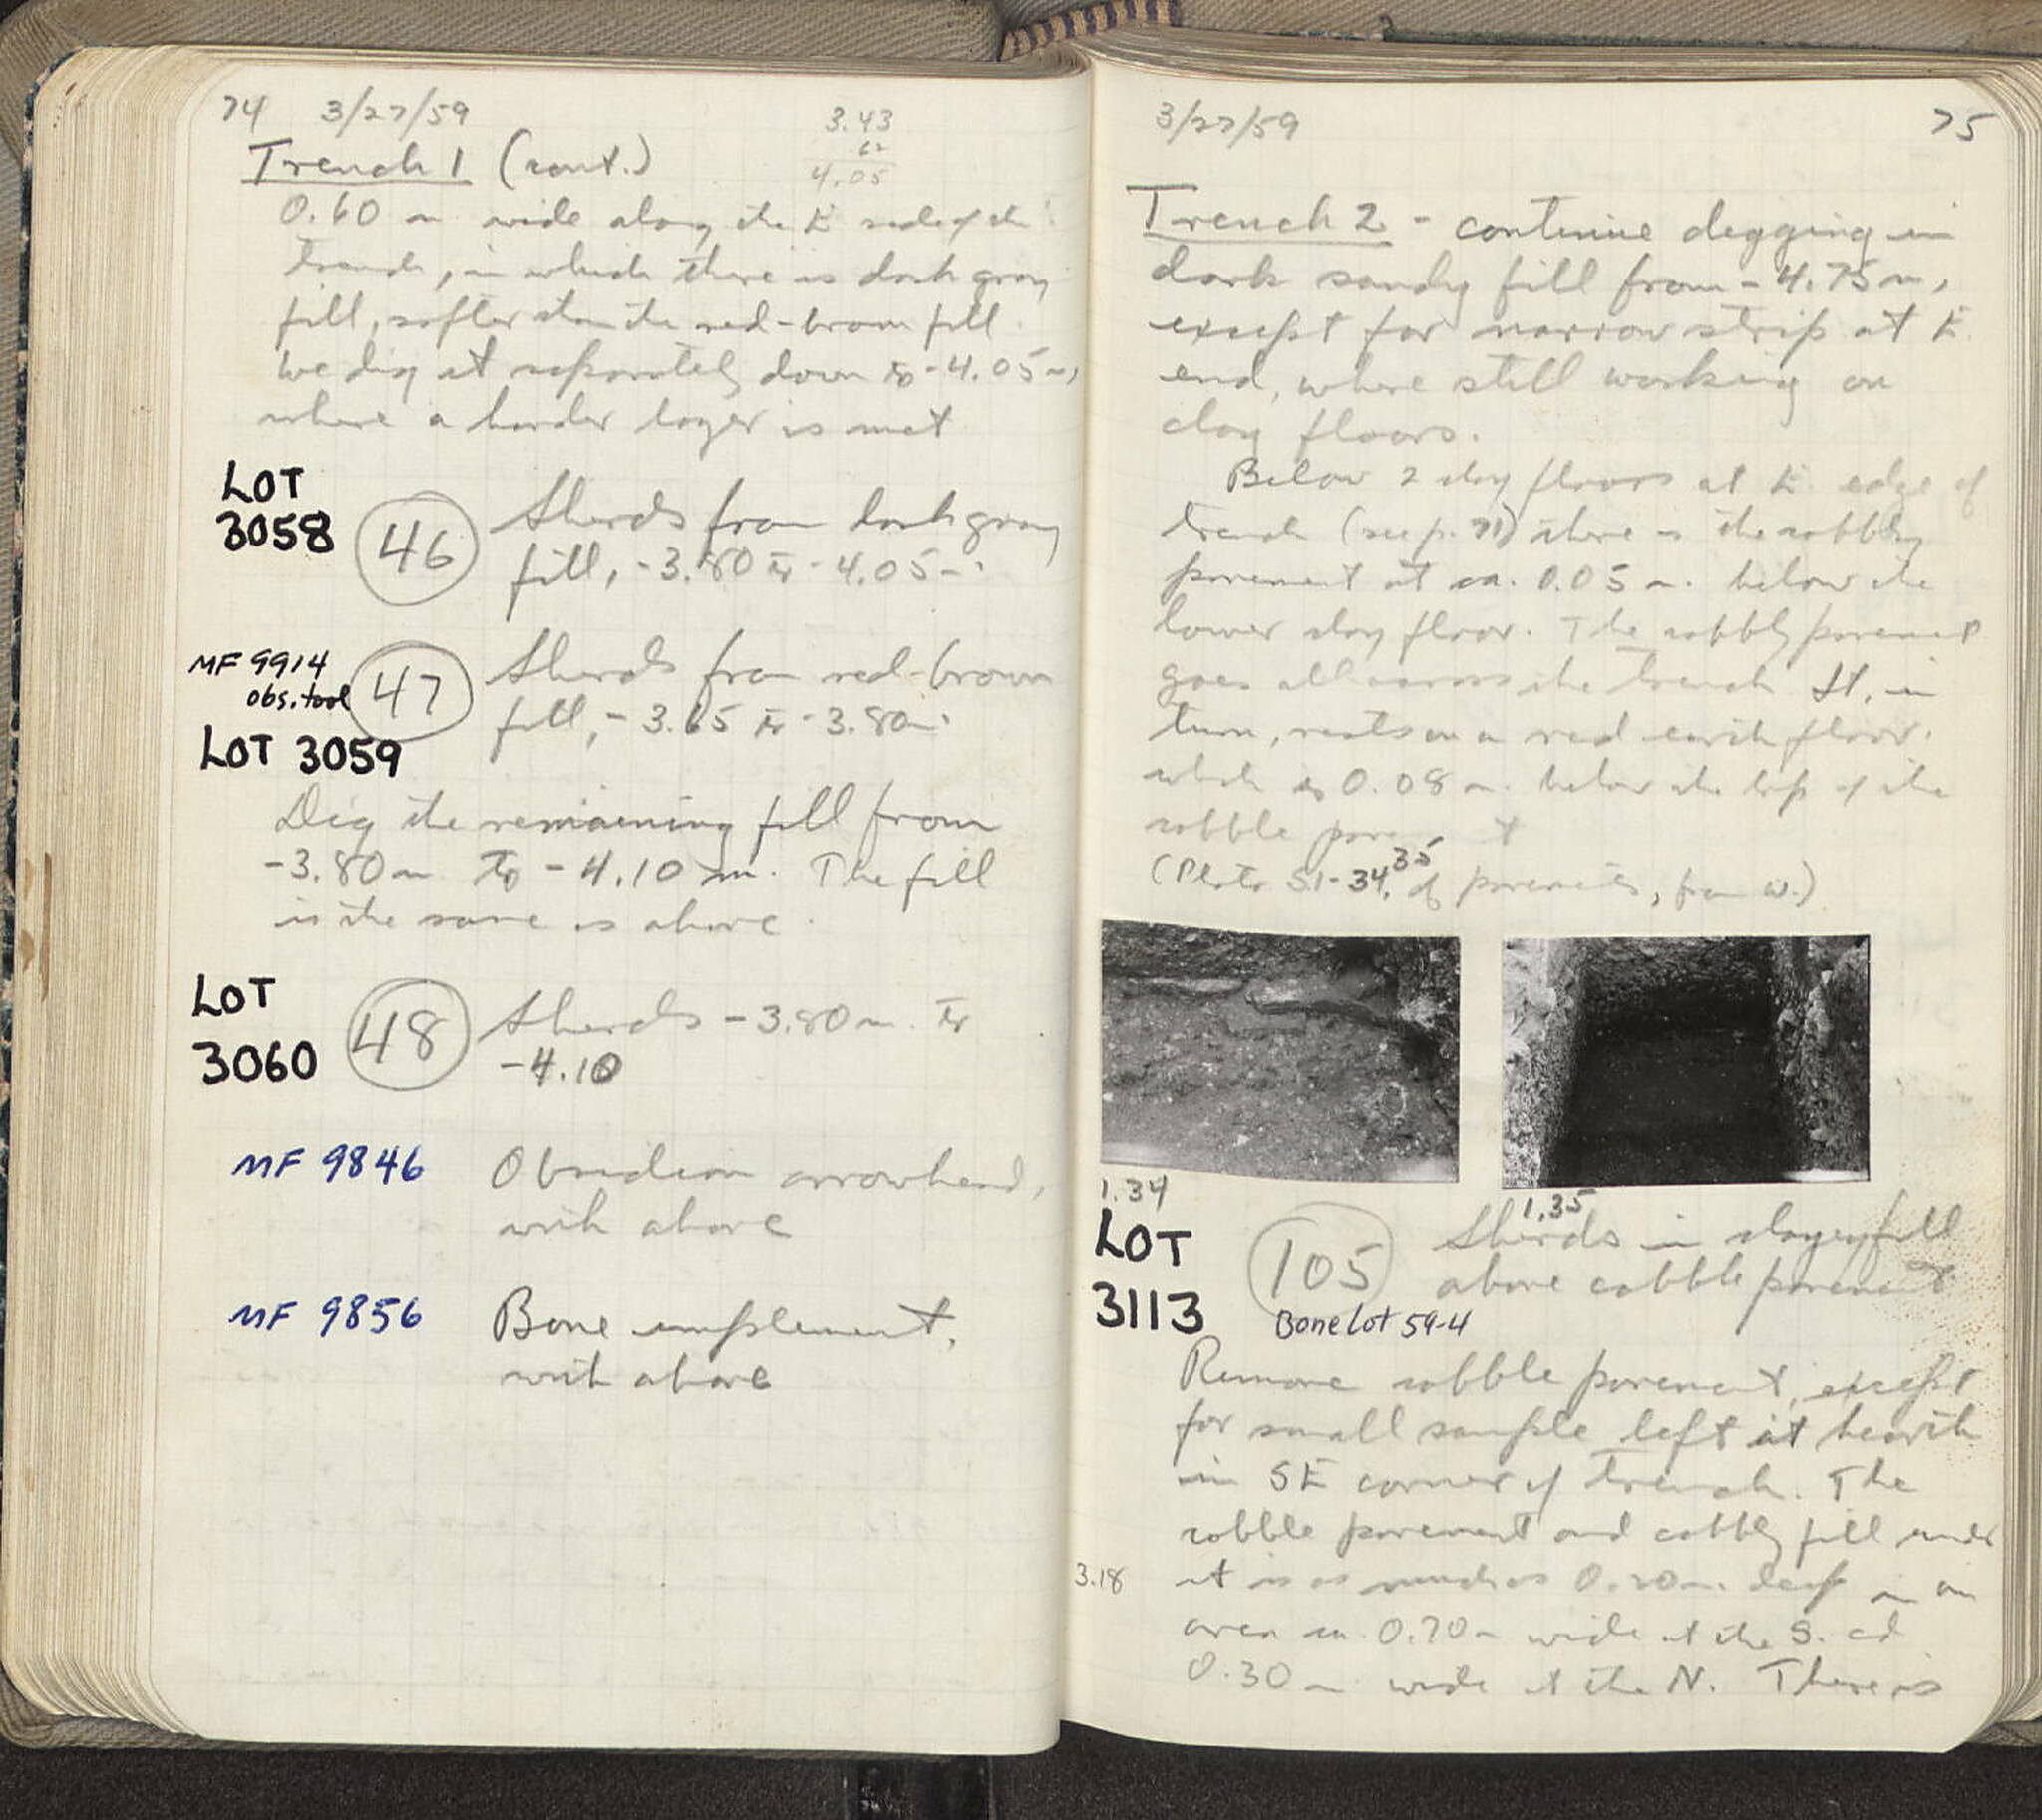 74 3/27/59
3.43
62
4.05
Trench 1 (cont.)
0.60 m wide along the E side of the
trench, in which there is dark gray
fill, softer than the red-brown fill
We dig it separately down to -4.05 m,
where a harder layer is met
LOT
3058
46
Sherds from dark gray
fill, -3.80 to -4.05 m.
MF 9914
obs. tool
47
LOT 3059
Sherds from red-brown
fill, -3.65 to -3.80 m.
Dig the remaining fill from
-3.80 m to -4.10 m. The fill
is the same as above.
LOT
3060
48
Sherds -3.80 m. to
-4.10
MF 9846
Obsidian arrowhead,
with above
MF 9856
Bone implement,
with above
3/27/59 75
Trench 2 - continue digging in
dark sandy fill from -4.75 m,
except for narrow strip at E
end, where still working on
clay floors.
Below 2 clay floors at E edge of
trench (see p. 71) there is the cobbly
pavement at ca. 0.05 m. below the
lower clay floor. The cobbly pavement
goes all across the trench It, in
turn, rests on a red earth floor.
which is 0.08 m. below the top of the
cobble
(Photo 51-34, 35 of pavements, from W.)
1.34
1.35
LOT
3113
105
Bone Lot 59-4
Sherds in clayey fill
above cobble pavement
Remove cobble pavement, except
for small sample left at hearth
in SE corner of trench. The
cobble pavement and cobbly fill under
3.18
it is as much as 0.20 m. deep in an
area ca. 0.70 m wide at the S. and
0.30 m wide at the N. There is